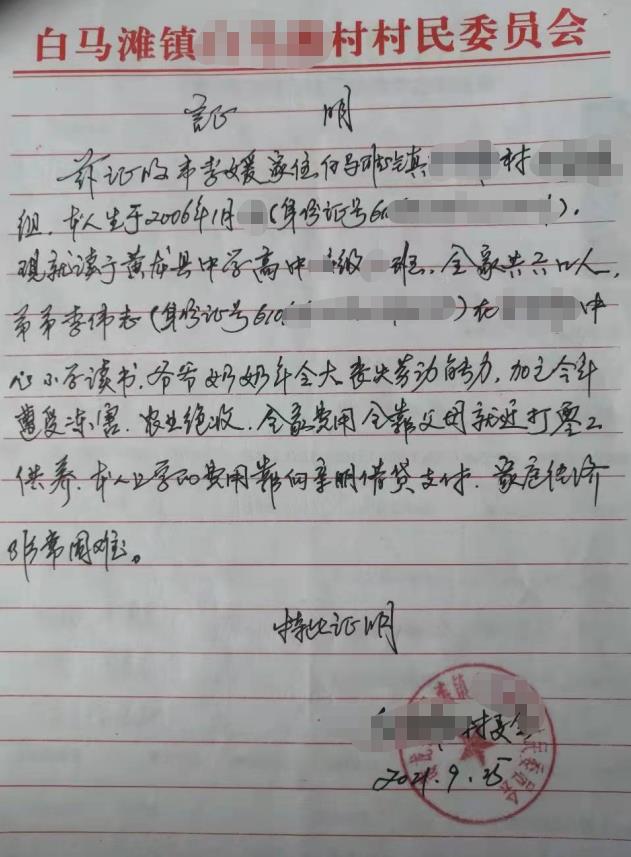 白马滩镇 村村民委员会
证 明
兹证明 李媛家住白马滩镇 村
组,本人生于2006年1月 (身份证号61 ),
现就读于黄龙县中学高中 级 班,全家共六口人,
弟弟李伟志(身份证号610 )在 中
心小学读书,爷爷奶奶年令大丧失劳动能力,加之今年
遭受冻害,农业绝收,全家费用全靠父母就近打零工
供养,本人上学的费用靠向亲朋借贷支付,家庭经济
非常困难。
特此证明
村委会
2021.9.25